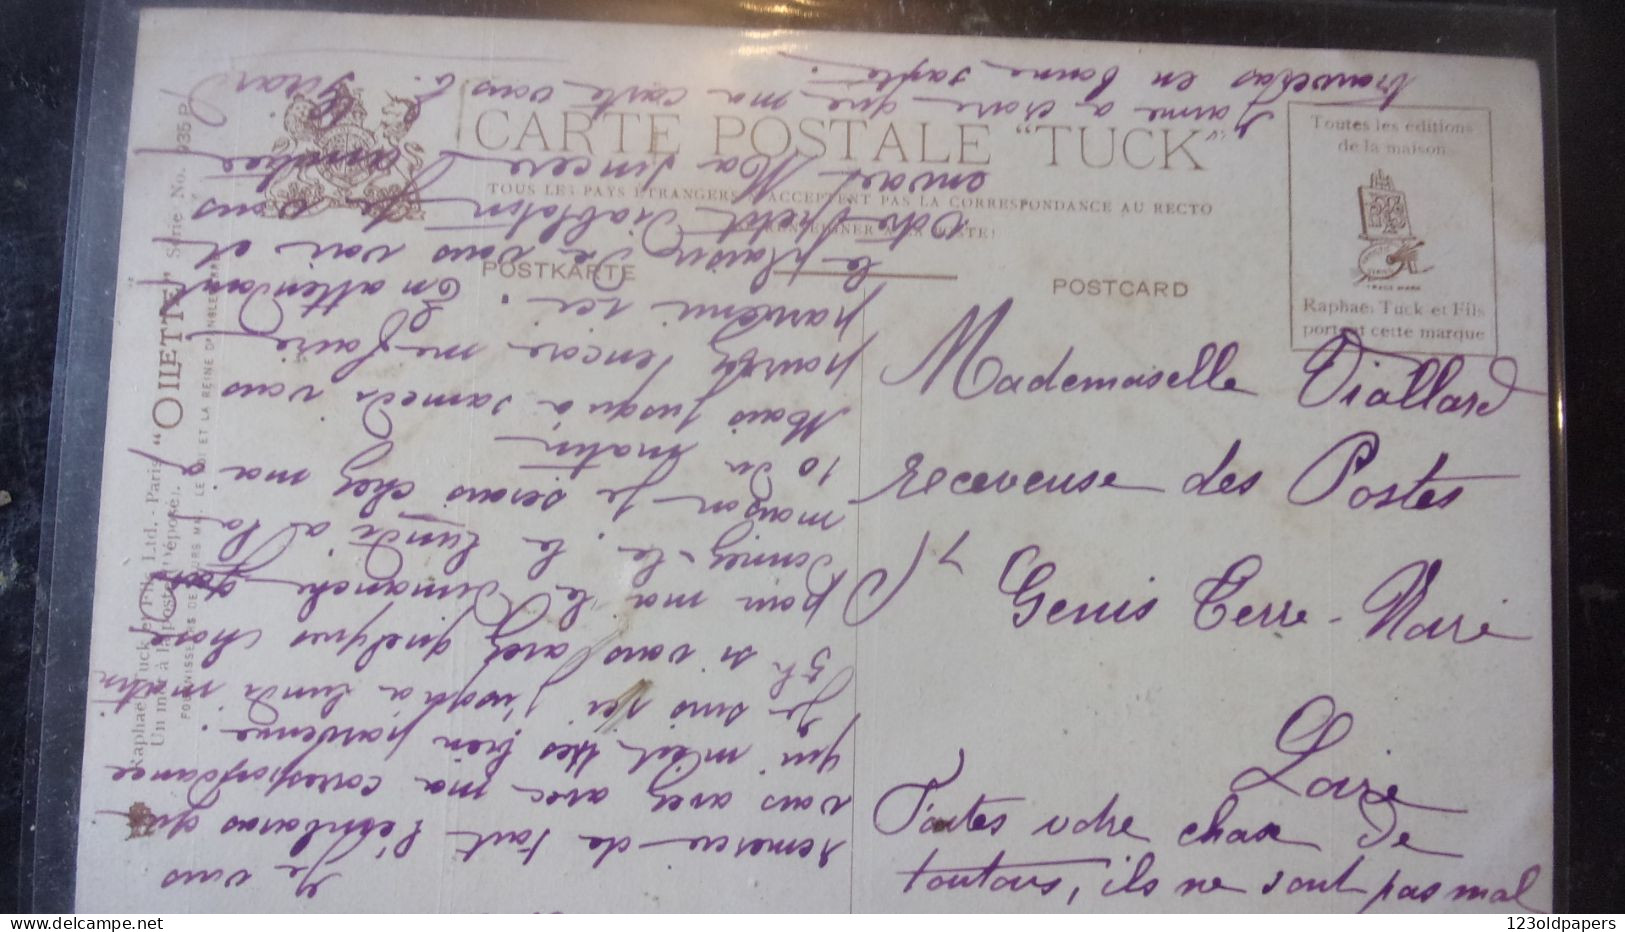 CARTE POSTALE "TUCK"
TOUS LES PAYS ÉTRANGERS N'ACCEPTENT PAS LA CORRESPONDANCE AU RECTO
POSTKARTE
POSTCARD
Toutes les éditions
de la maison
TRADE MARK
Raphael Tuck et Fils
portent cette marque
Raphael Tuck et Fils Ltd. - Paris "OILETTE" Série No. 935 P
FOURNISSEURS DE LEURS MM. LE ROI ET LA REINE D'ANGLETERRE
Mademoiselle Viallard
receveuse des Postes
St Genis Terre-Noire
Loire
Faites votre choix de
toutous, ils ne sont pas mal
Je vous
remercie de tout l'embaras que
vous avez avec ma correspondance
qui m'est très bien parvenue.
Je suis ici jusqu'à lundi matin
5h si vous avez quelques choses
pour moi le Dimanche
Donnez-le le lundi à la
maison je serais chez moi
10 du matin
Mais jusqu'à samedi vous
pouvez encore me faire
parvenir ici. En attendant
le plaisir de vous voir et
votre petit diablotin je vous
envoi Ma sincère amitiée
Girard
J'aime à croire que ma carte vous
trouveras en bonne santé.
123oldpapers